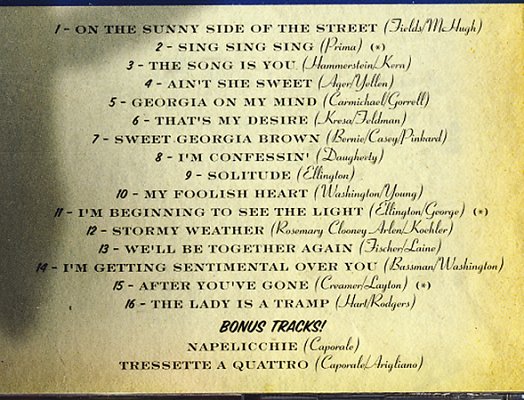 1 - ON THE SUNNY SIDE OF THE STREET (Fields/McHugh)
2 - SING SING SING (Prima) (*)
3 - THE SONG IS YOU (Hammerstein/Kern)
4 - AIN'T SHE SWEET (Ager/Yellen)
5 - GEORGIA ON MY MIND (Carmichael/Gorrell)
6 - THAT'S MY DESIRE (Kresa/Feldman)
7 - SWEET GEORGIA BROWN (Bernie/Casey/Pinkard)
8 - I'M CONFESSIN' (Daugherty)
9 - SOLITUDE (Ellington)
10 - MY FOOLISH HEART (Washington/Young)
11 - I'M BEGINNING TO SEE THE LIGHT (Ellington/George) (*)
12 - STORMY WEATHER (Rosemary Clooney Arlen/Koehler)
13 - WE'LL BE TOGETHER AGAIN (Fischer/Laine)
14 - I'M GETTING SENTIMENTAL OVER YOU (Bassman/Washington)
15 - AFTER YOU'VE GONE (Creamer/Layton) (*)
16 - THE LADY IS A TRAMP (Hart/Rodgers)
BONUS TRACKS!
NAPELICCHIE (Caporale)
TRESSETTE A QUATTRO (Caporale/Arigliano)